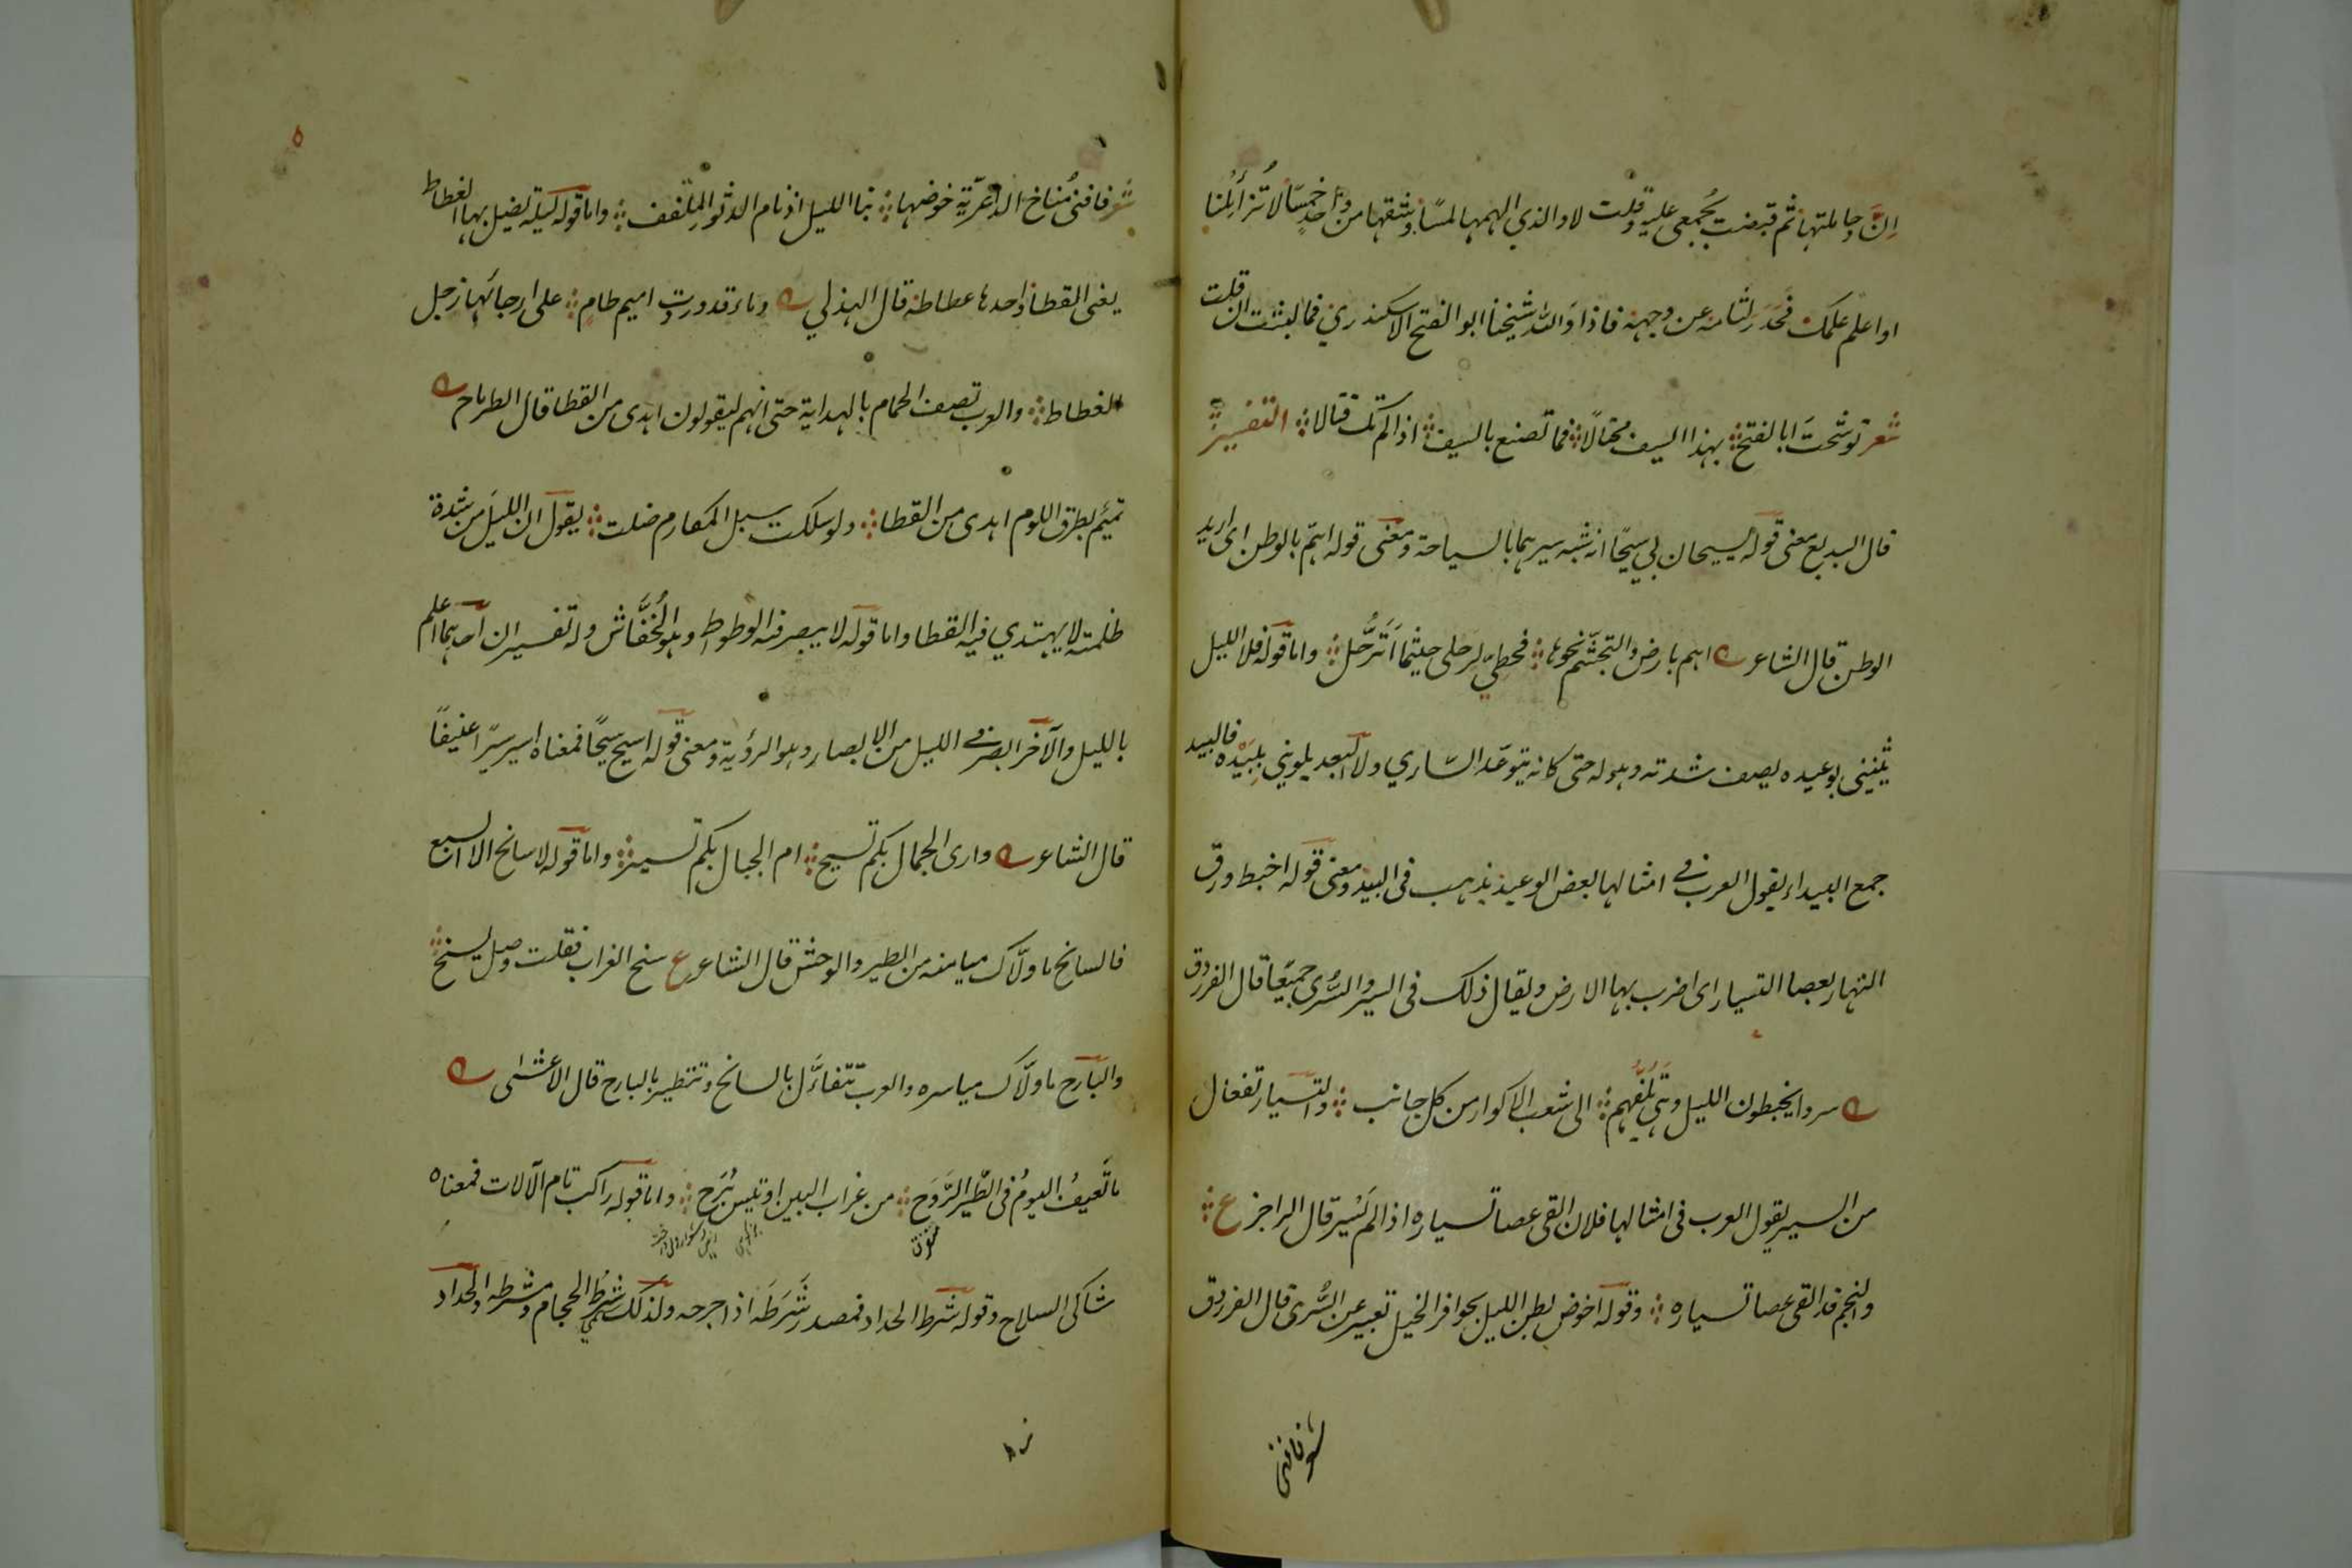 اِنَّ وجاملتها ثم قبضت بجمعي عليه وقلت لا والذي الهمها لمسًا وشقها من واحدٍ خمسًا لا تُزأيلُنا
او اعلم علمك فحدر لثامه عن وجهه فاذا والله شيخنا ابو الفتح الاسكندري فما لبثت ان قلت
شعر توشحتَ ابا الفتح بهذا السيف مختالًا فما تصنع بالسيف اذا لم تك قتالا التفسير
قال البديع معنى قوله يسيحان بي سيحًا انه شبه سيرهما بالسياحة ومعنى قوله اهمّ بالوطن اى اريد
الوطن قال الشاعر اهم بارض والتجشّم نحوها فحطي لرحلي حيثما اَتَرَحَّل واما قوله فلا الليل
يثنيني بوعيده يصف شدته وهوله حتى كانه يتوعّد السّاري ولا البعد يلويني بِبَيْده فالبيد
جمع البيداء يقول العرب في امثالها بعض الوعيد يذهب فى البيد ومعنى قوله اخبط ورق
النهار بعصا التسيار اى اضرب بها الارض ويقال ذلك فى السير والسُّرى جميعًا قال الفرزدق
سروا يخبطون الليل وهي تلفّهم الى شعب الاكوار من كل جانب والتسيار تفعال
من السير يقول العرب فى امثالها فلان القى عصا تسياره اذا لم يَسِير قال الراجز ع
والنجم قد القى عصا تسياره وقوله اخوض بطن الليل بحوافر الخيل تعبير عن السُّرى قال الفرزدق
شعر فافنى
٥
شعر فافنى مُناخ الداعريّة خوضها بنا الليل اذ نام الدثور الملفف واما قوله ليلة يضل بها الغطاط
يعنى القطا واحدها غطاطة قال الهذلي وماء قد وردت اميم طامٍ على ارجائها زجل
الغطاط والعرب تصف الحمام بالهداية حتى انهم ليقولون اهدى من القطا قال الطرماح
تميم بطرق اللوم اهدى من القطا ولو سلكت سبل المكارم ضلت يقول ان الليل من شدة
ظلمته لا يهتدي فيه القطا واما قوله لا يبصر فيه الوطواط وهو الخُفَّاش وله تفسيران احدهما اعلم
بالليل والآخر ابصر في الليل من الابصار وهو الرؤية ومعنى قوله اسيح سيحًا فمعناه اسير سيرًا عنيفًا
قال الشاعر وارى الجمال بكم تسيح ام الجبال بكم تسير واما قوله لا سانح الا السبع
فالسانح ما ولّاك ميامنه من الطير والوحش قال الشاعر ع سنح الغراب فقلت وصل يسنح
والبارح ما ولّاك مياسره والعرب تتفاءَل بالسانح وتتطير بالبارح قال الاعشى
ما تَعيفُ اليومُ فى الطّير الرَّوَح من غراب البين او تيس بُرَح واما قوله راكب تام الآلات فمعناه
شاكى السلاح وقوله شرط الحداد فمصدر شَرَطَه اذا جرحه ولذلك سُمي شرط الحجام ومشرطه والحداد